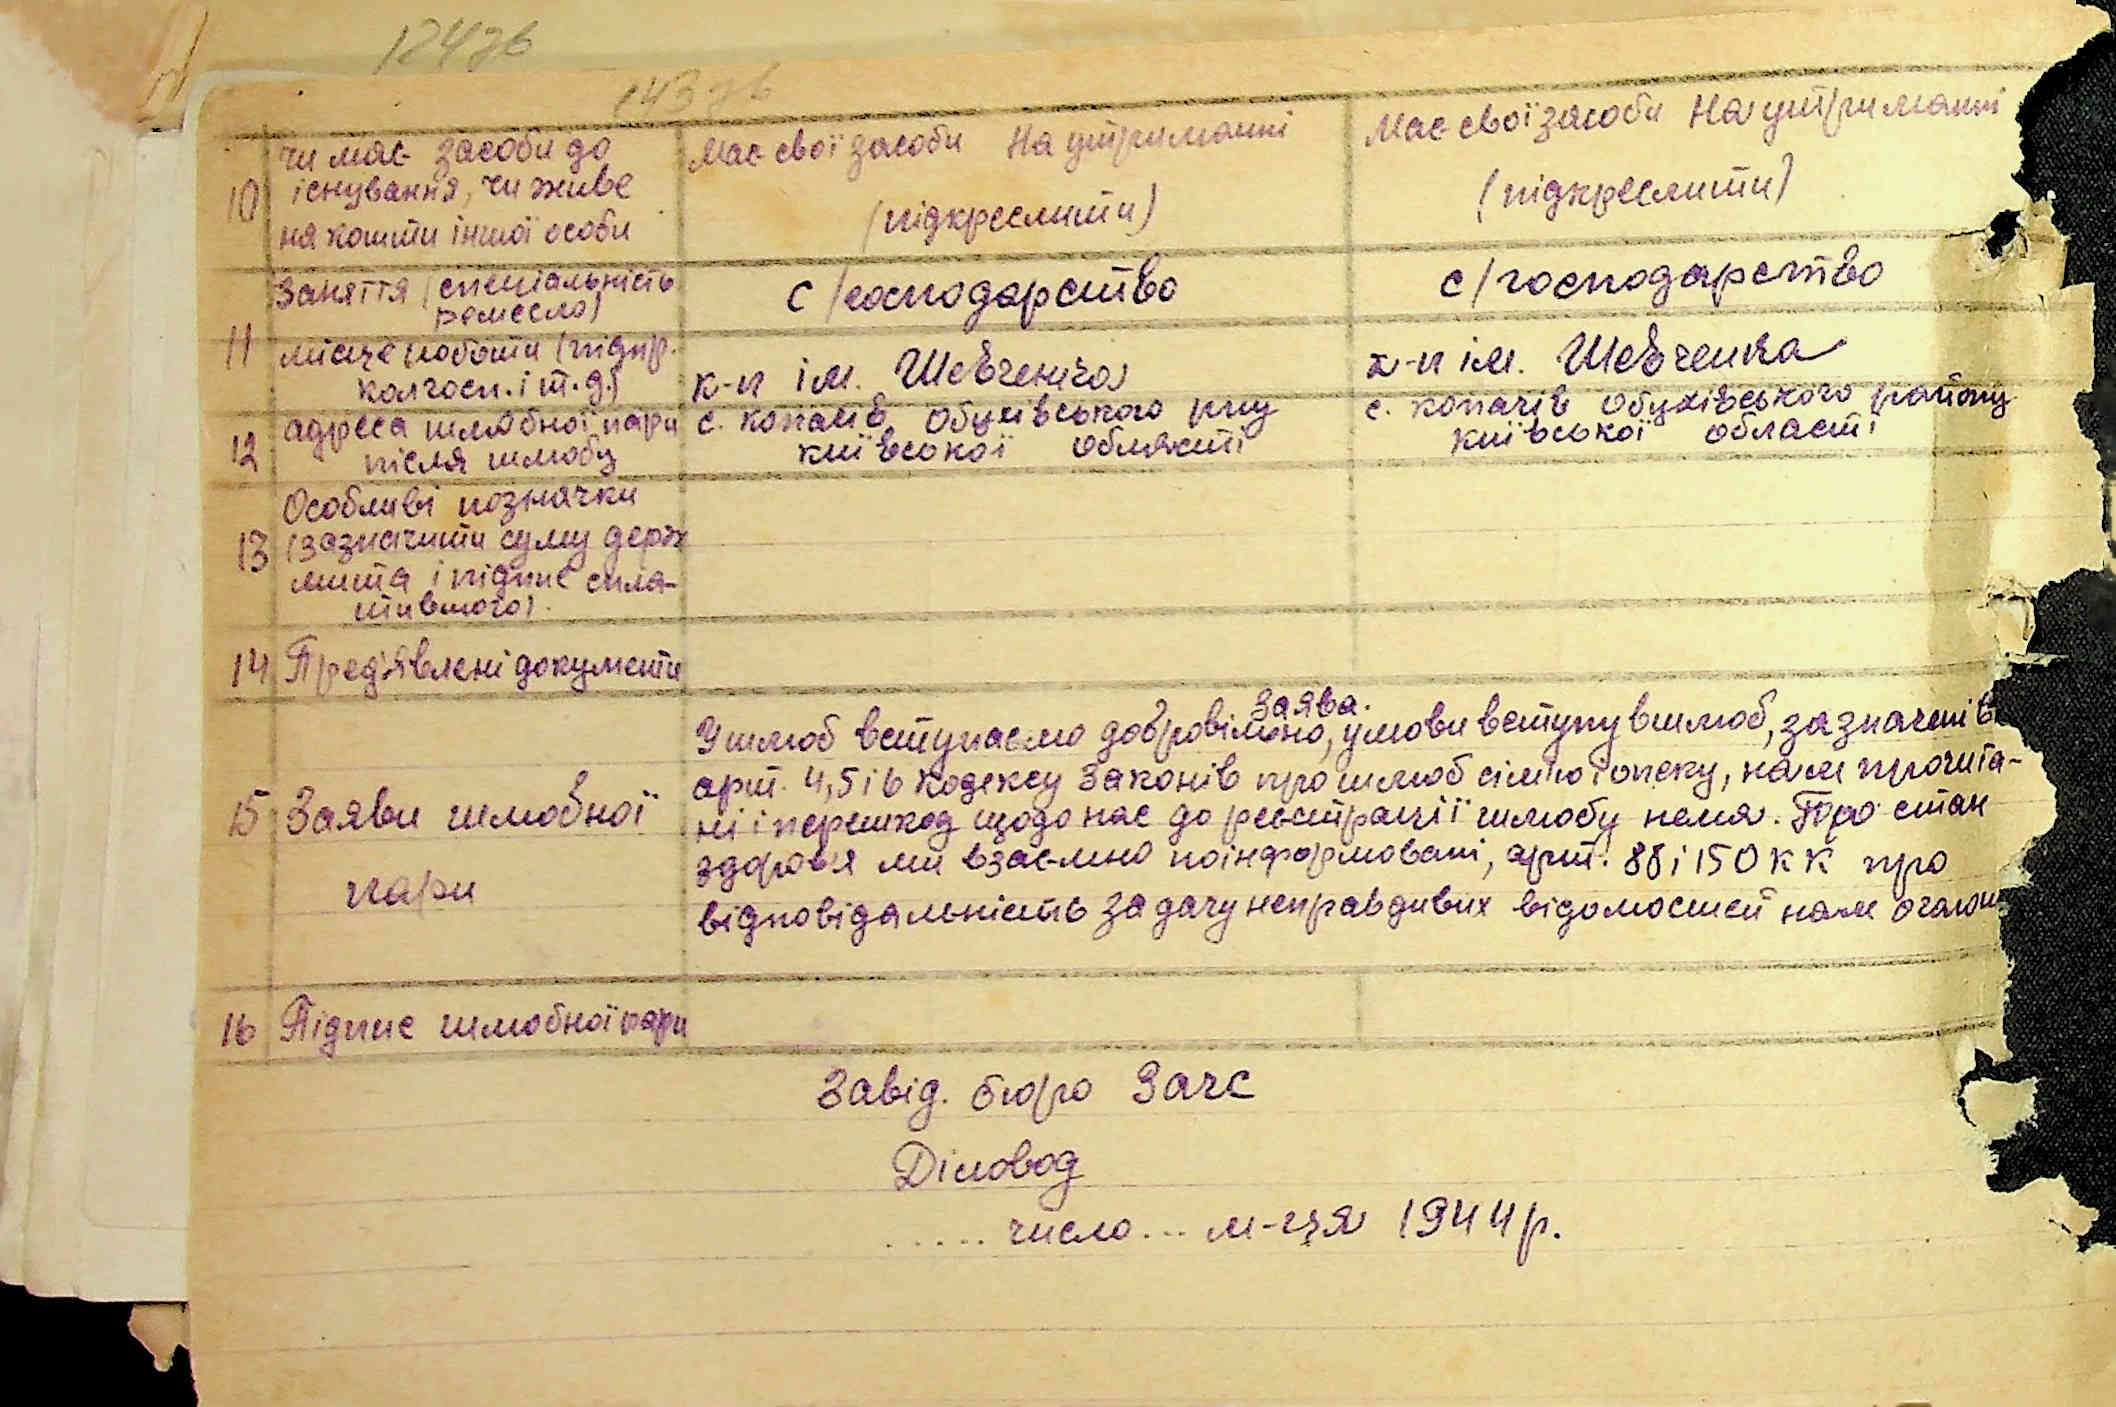 124зв
143зв
10 чи має засоби до існування, чи живе на кошти іншої особи
Має свої засоби На утриманні
(підкреслити)
Має свої засоби На утриманні
(підкреслити)
11 Заняття (спеціальність ремесло)
с/господарство
с/господарство
місце роботи (підпр. колгосп. і т.д.)
к-п ім. Шевченка
к-п ім. Шевченка
12 адреса шлюбної пари
після шлюбу
с. Копачів Обухівського р-ну
київської області
с. копачів обухівського району
київської області
13 Особливі позначки
(зазначити суму держ
мита і підпис спла-
тившого).
14 Пред'явлені документи
15 Заяви шлюбної
пари
Заява.
У шлюб вступаємо добровільно, умови вступу в шлюб, зазначені в
арт. 4,5 і 6 кодексу Законів про шлюб сім'ю і опеку, нам прочита-
ні і перешкод щодо нас до реєстрації шлюбу нема. Про стан
здоров'я ми взаємно поінформовані, арт. 88 і 150 КК про
відповідальність за дачу неправдивих відомостей нам оголош
16 Підпис шлюбної пари
Завід. бюро Загс
Діловод
..... число ... м-ця 1944 р.